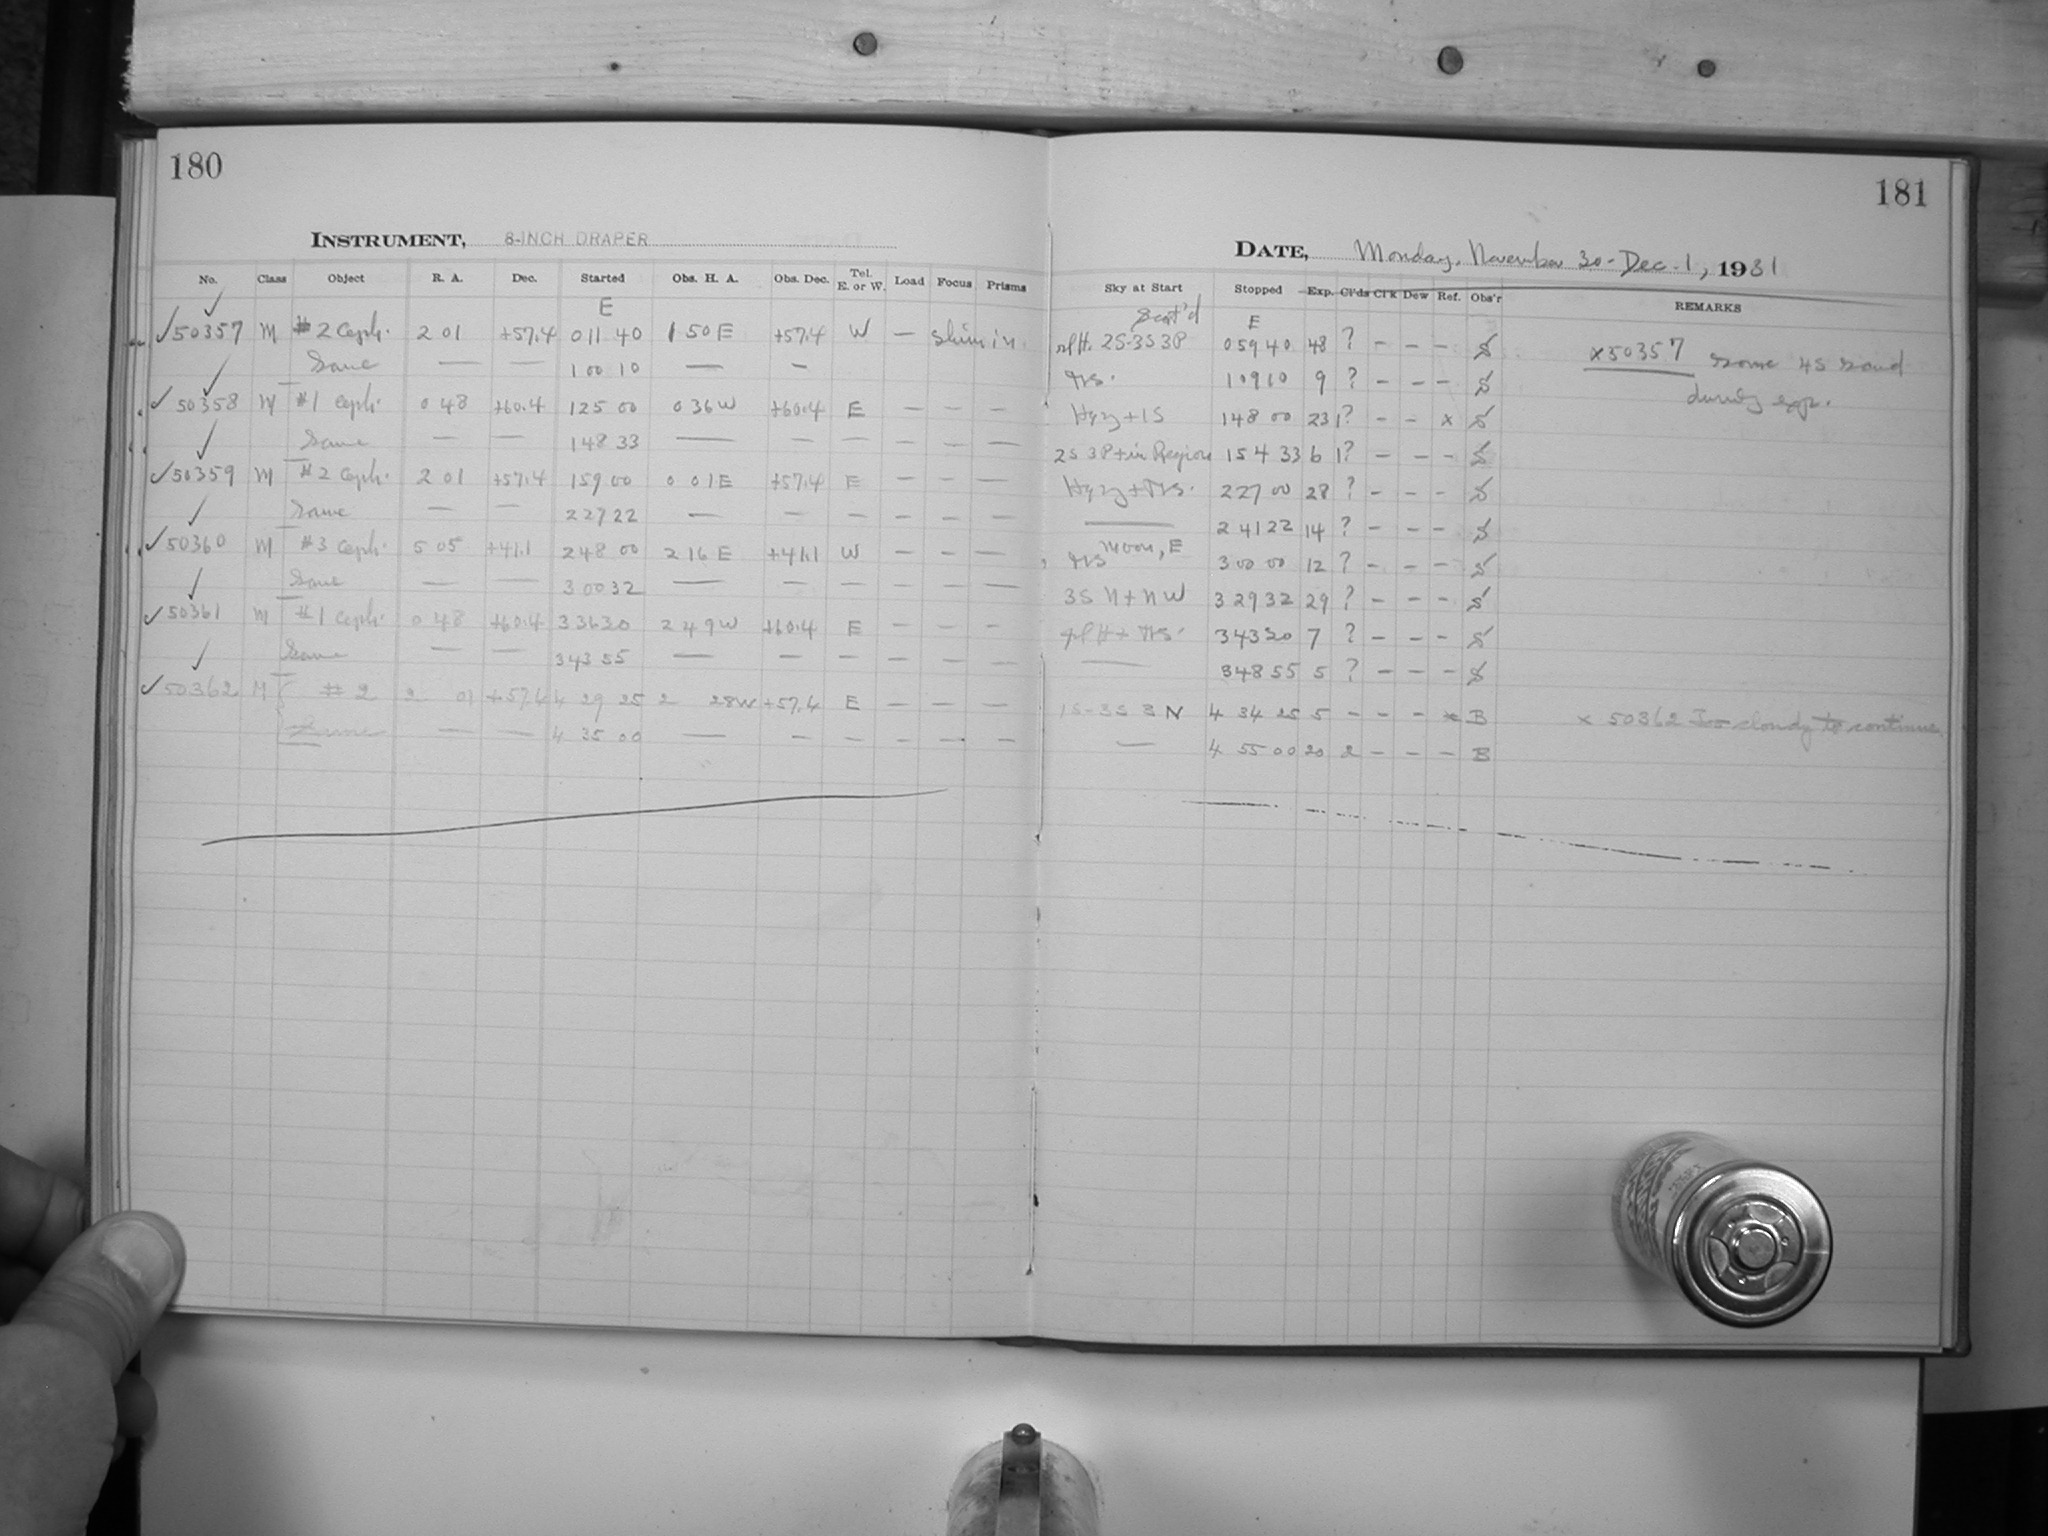 180
INSTRUMENT, 8-INCH DRAPER
No. Class Object R. A. Dec. Started Obs. H. A. Obs. Dec. Tel. E. or W. Load Focus Prisms
E
50357 M #2 Ceph. 2 01 +57.4 0 11 40 1 50 E +57.4 W — Shim in.
Same — — 1 00 10 — —
50358 M #1 Ceph. 0 48 +60.4 1 25 00 0 36 W +60.4 E — — —
Same — — 1 48 33 — — — — — —
50359 M #2 Ceph. 2 01 +57.4 1 59 00 0 01 E +57.4 E — — —
Same — — 2 27 22 — — — — — —
50360 M #3 Ceph. 5 05 +41.1 2 48 00 2 16 E +41.1 W — — —
Same — — 3 00 32 — — — — — —
50361 M #1 Ceph. 0 48 +60.4 3 36 30 2 49 W +60.4 E — — —
Same — — 3 43 55 — — — — — —
50362 M #2 2 01 +57.4 4 29 25 2 28 W +57.4 E — — —
Same — — 4 35 00 — — — — — —
181
DATE, Monday, November 30-Dec. 1, 1931
Sky at Start Stopped Exp. Cl'ds Cl'k Dew Ref. Obs'r REMARKS
Scat'd E
2S-3S 3P 0 59 40 48 ? — — — S x50357 Some 4S
1 09 10 9 ? — — — S during exp.
Hazy + 1S 1 48 00 23 1? — — x S
2S 3P + in Region 1 54 33 6 1? — — — S
Hazy + 2 27 00 28 ? — — — S
— 2 41 22 14 ? — — — S
Moon, E 3 00 00 12 ? — — — S
3S N + NW 3 29 32 29 ? — — — S
3 43 30 7 ? — — — S
— 3 48 55 5 ? — — — S
1S-3S 3N 4 34 25 5 — — — x B x 50362 Too cloudy to continue.
— 4 55 00 20 2 — — — B